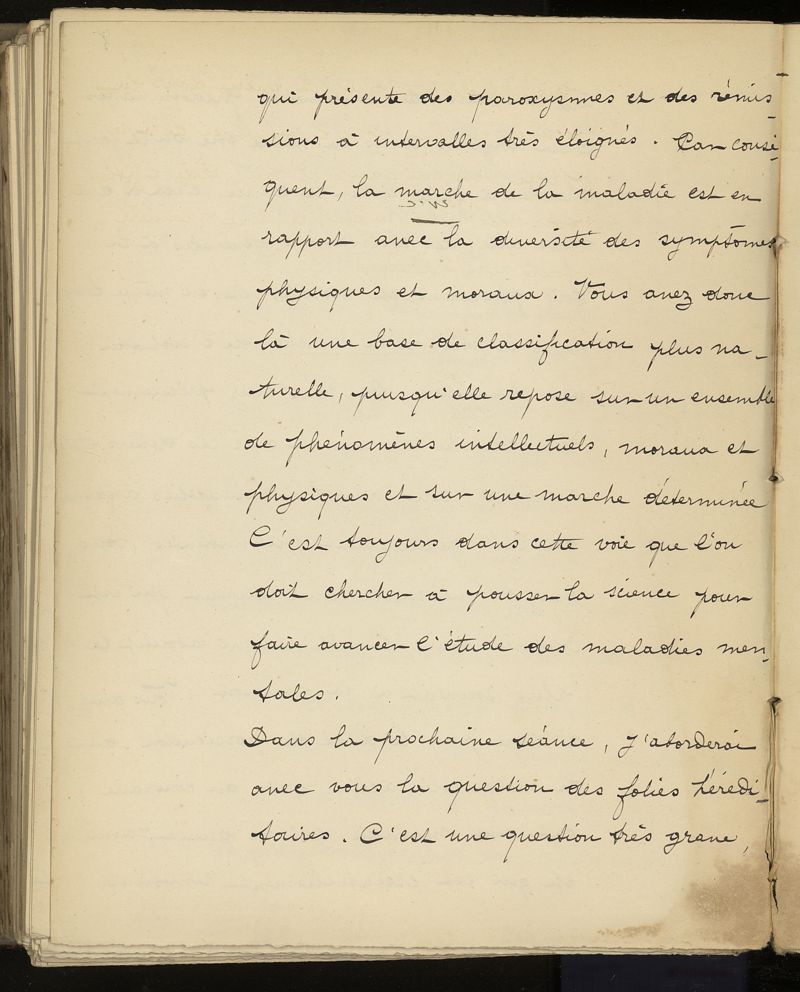 qui présente des paroxysmes et des rémis-
sions à intervalles très éloignés. Par consé-
quent, la marche de la maladie est en
rapport avec la diversité des symptômes
physiques et moraux. Vous avez donc
là une base de classification plus na-
turelle, puisqu'elle repose sur un ensemble
de phénomènes intellectuels, moraux et
physiques et sur une marche déterminée
C'est toujours dans cette voie que l'on
doit chercher à pousser la science pour
faire avancer l'étude des maladies men-
tales.
Dans la prochaine séance, j'aborderai
avec vous la question des folies hérédi-
taires. C'est une question très grave,